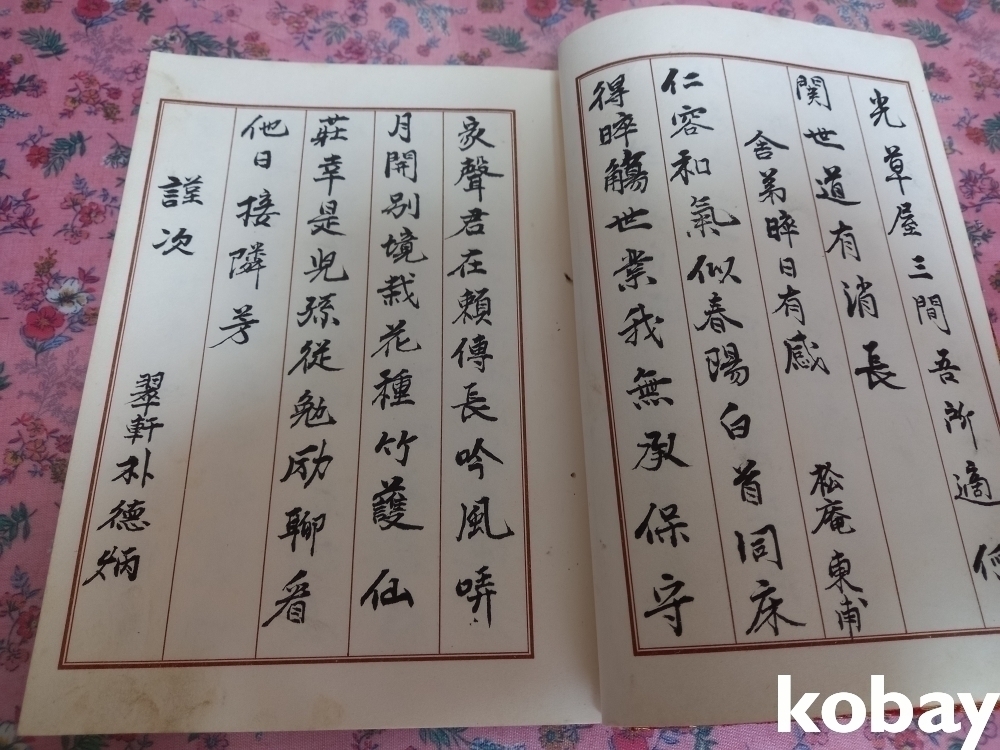 光草屋三間吾所適
関世道有消長
舍弟晬日有感 松庵東甫
仁容和氣似春陽白首同床
得晬觴世業我無承保守
家聲君在賴傳長吟風哢
月開別境栽花種竹護仙
莊幸是児孫從勉励聊看
他日接隣芳
謹次 翠軒朴德炳
kobay